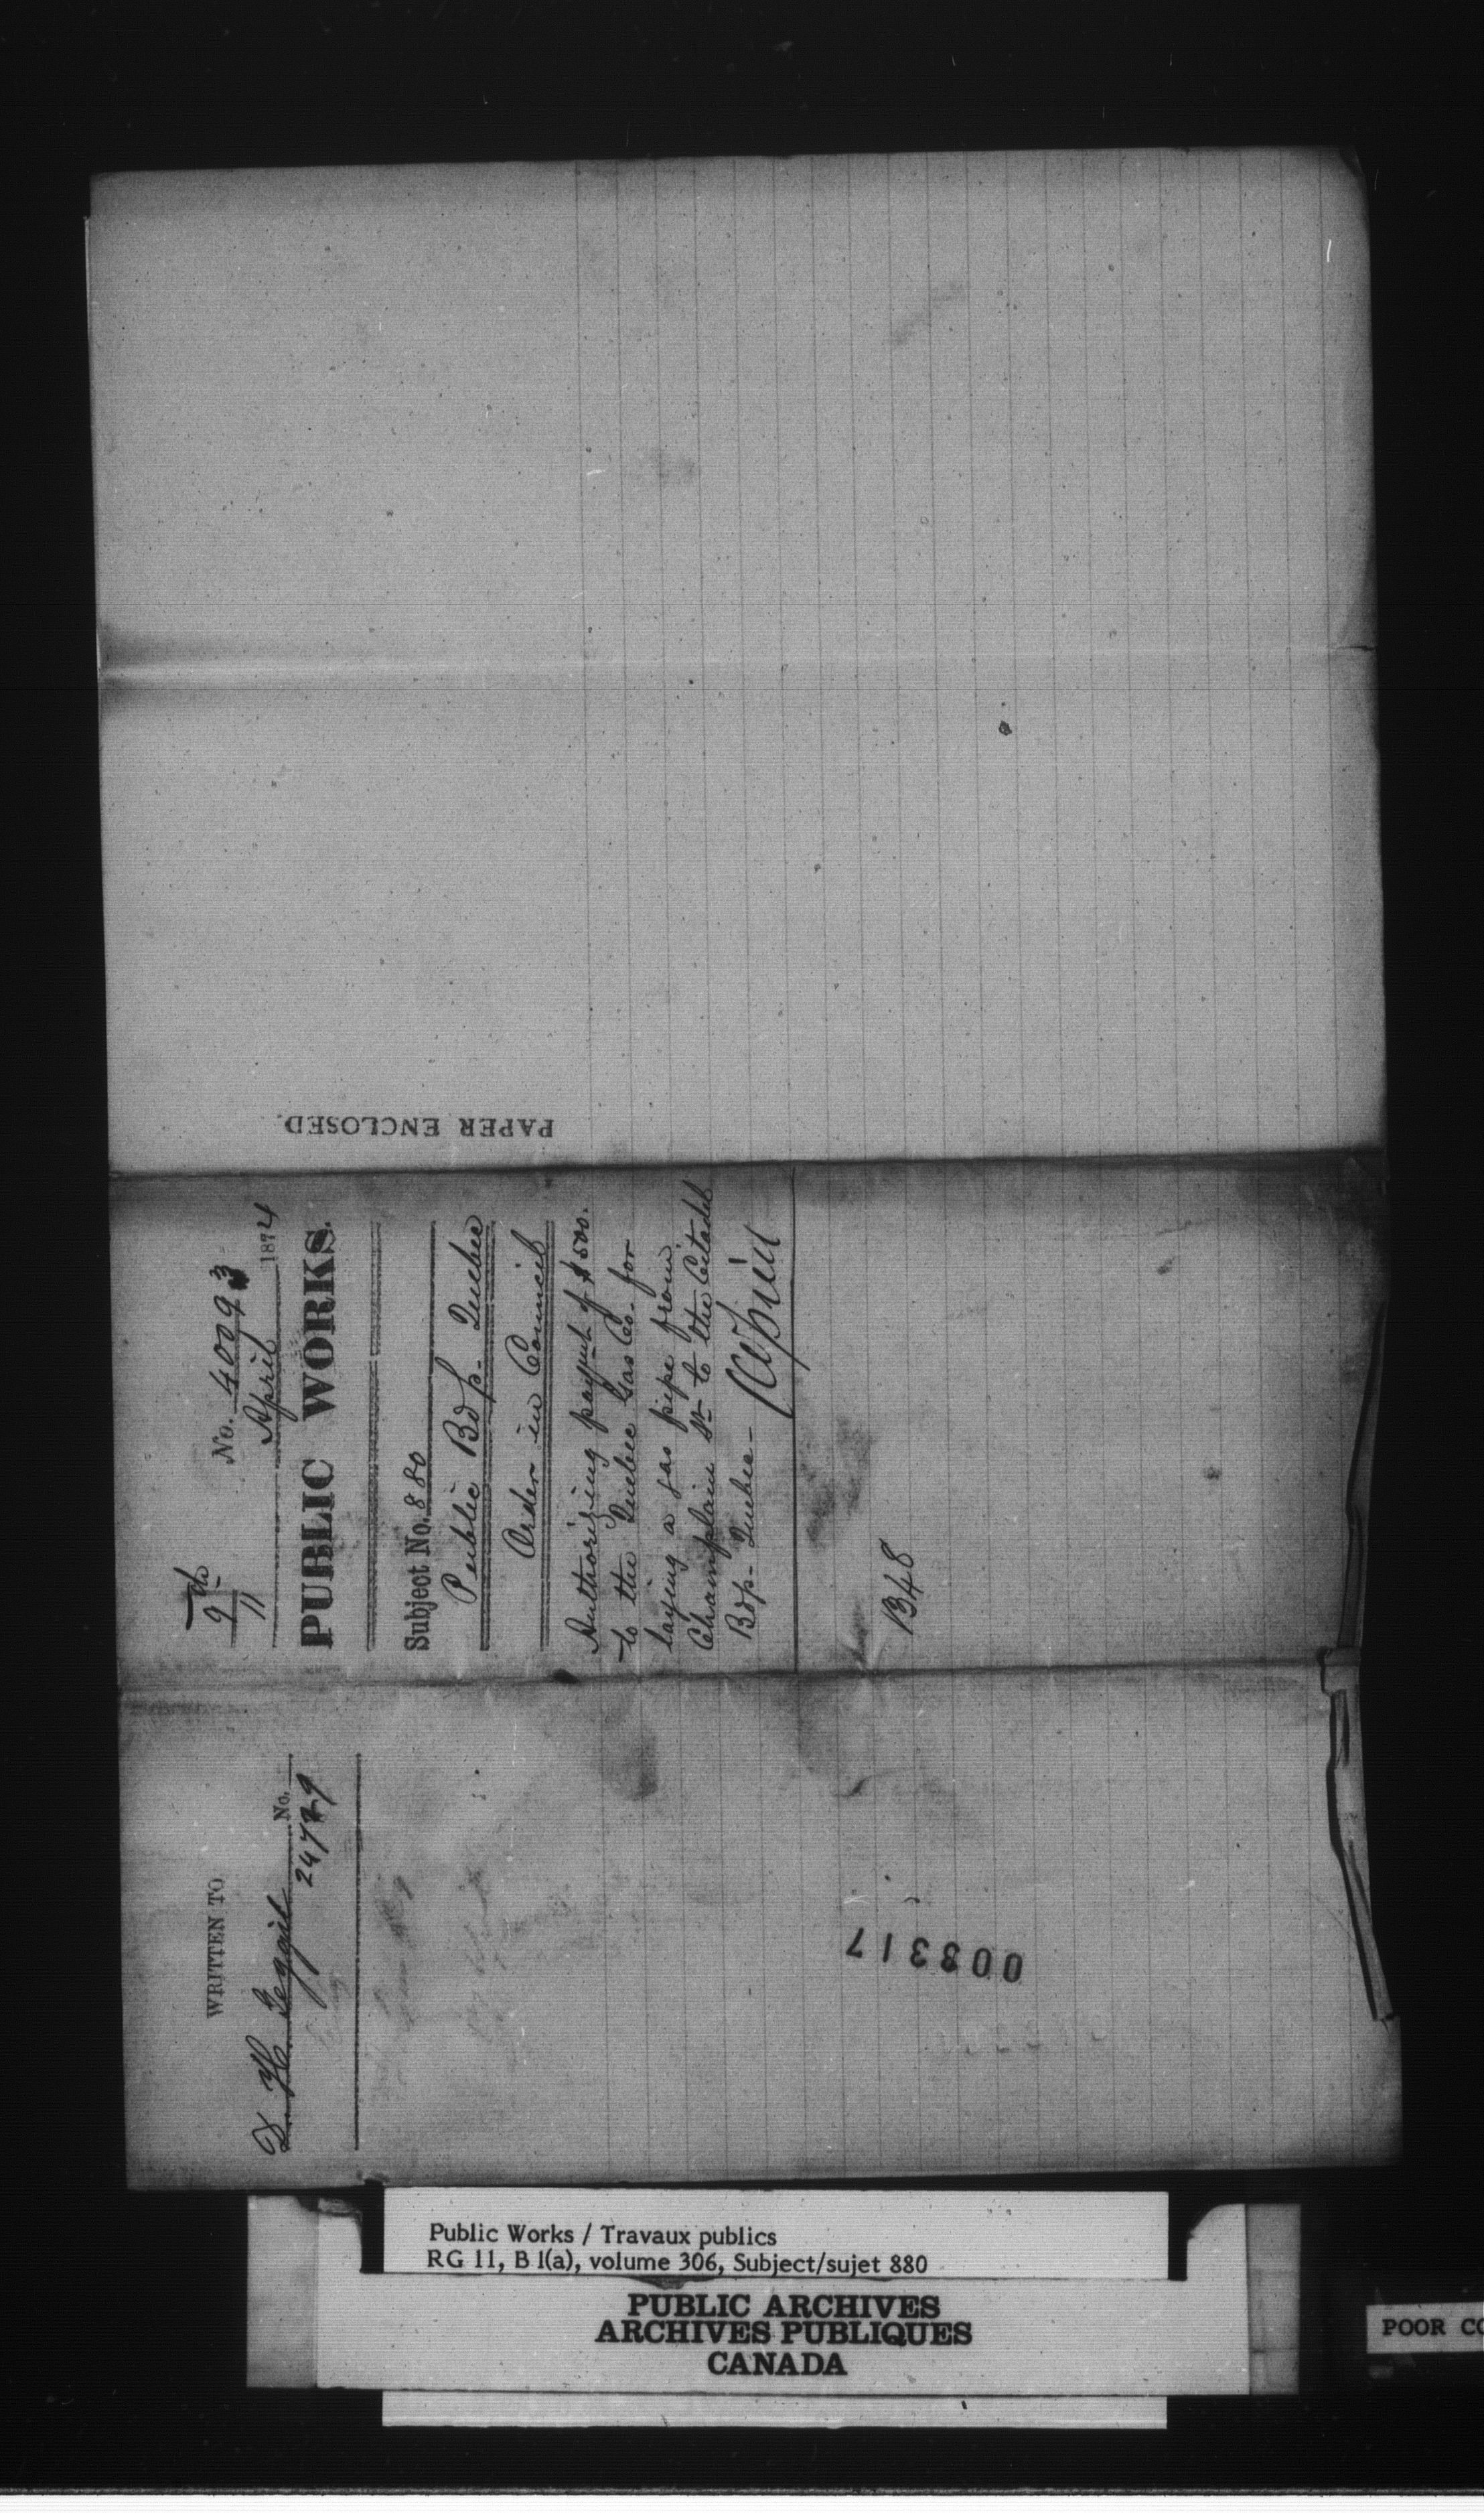 PAPER ENCLOSED.
9th
11
No. 40093
April 1874
PUBLIC WORKS.
Subject No. 880
Public Bdgs. Quebec
Order in Council
Authorizing paym't of $500.
to the Quebec Gas Co. for
laying a gas pipe from
Champlain St to the Citadel
Bdgs. Quebec -
1348
WRITTEN TO
No.
003317
Public Works / Travaux publics
RG 11, B 1(a), volume 306, Subject/sujet 880
PUBLIC ARCHIVES
ARCHIVES PUBLIQUES
CANADA
POOR CO